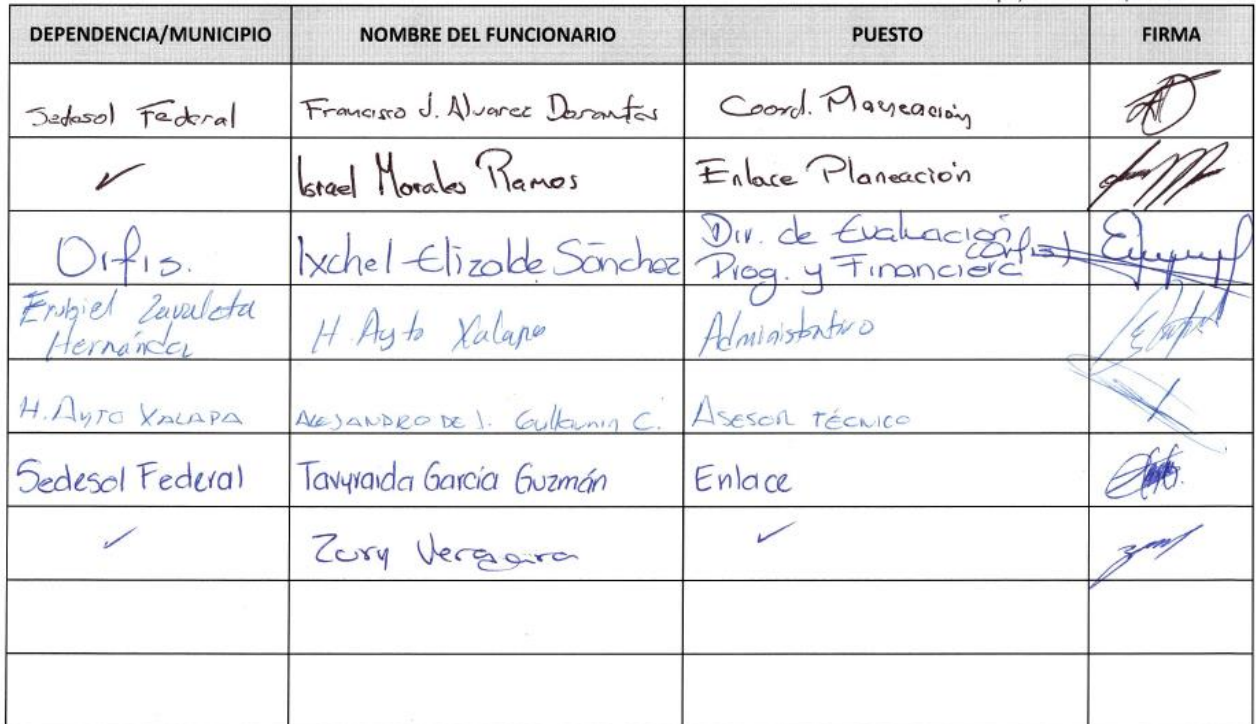 DEPENDENCIA/MUNICIPIO NOMBRE DEL FUNCIONARIO PUESTO FIRMA
Sedesol Federal Francisco J. Alvarez Dorantes Coord. Planeación
✓ Israel Morales Ramos Enlace Planeación
Orfis. Ixchel Elizalde Sánchez Dir. de Evaluación
Prog. y Financiera (Orfis)
Erubiel Zavaleta
Hernández H. Ayto Xalapa Administrativo
H. AYTO XALAPA ALEJANDRO DE J. C. ASESOR TÉCNICO
Sedesol Federal García Guzmán Enlace
✓ Zury Vergara ✓